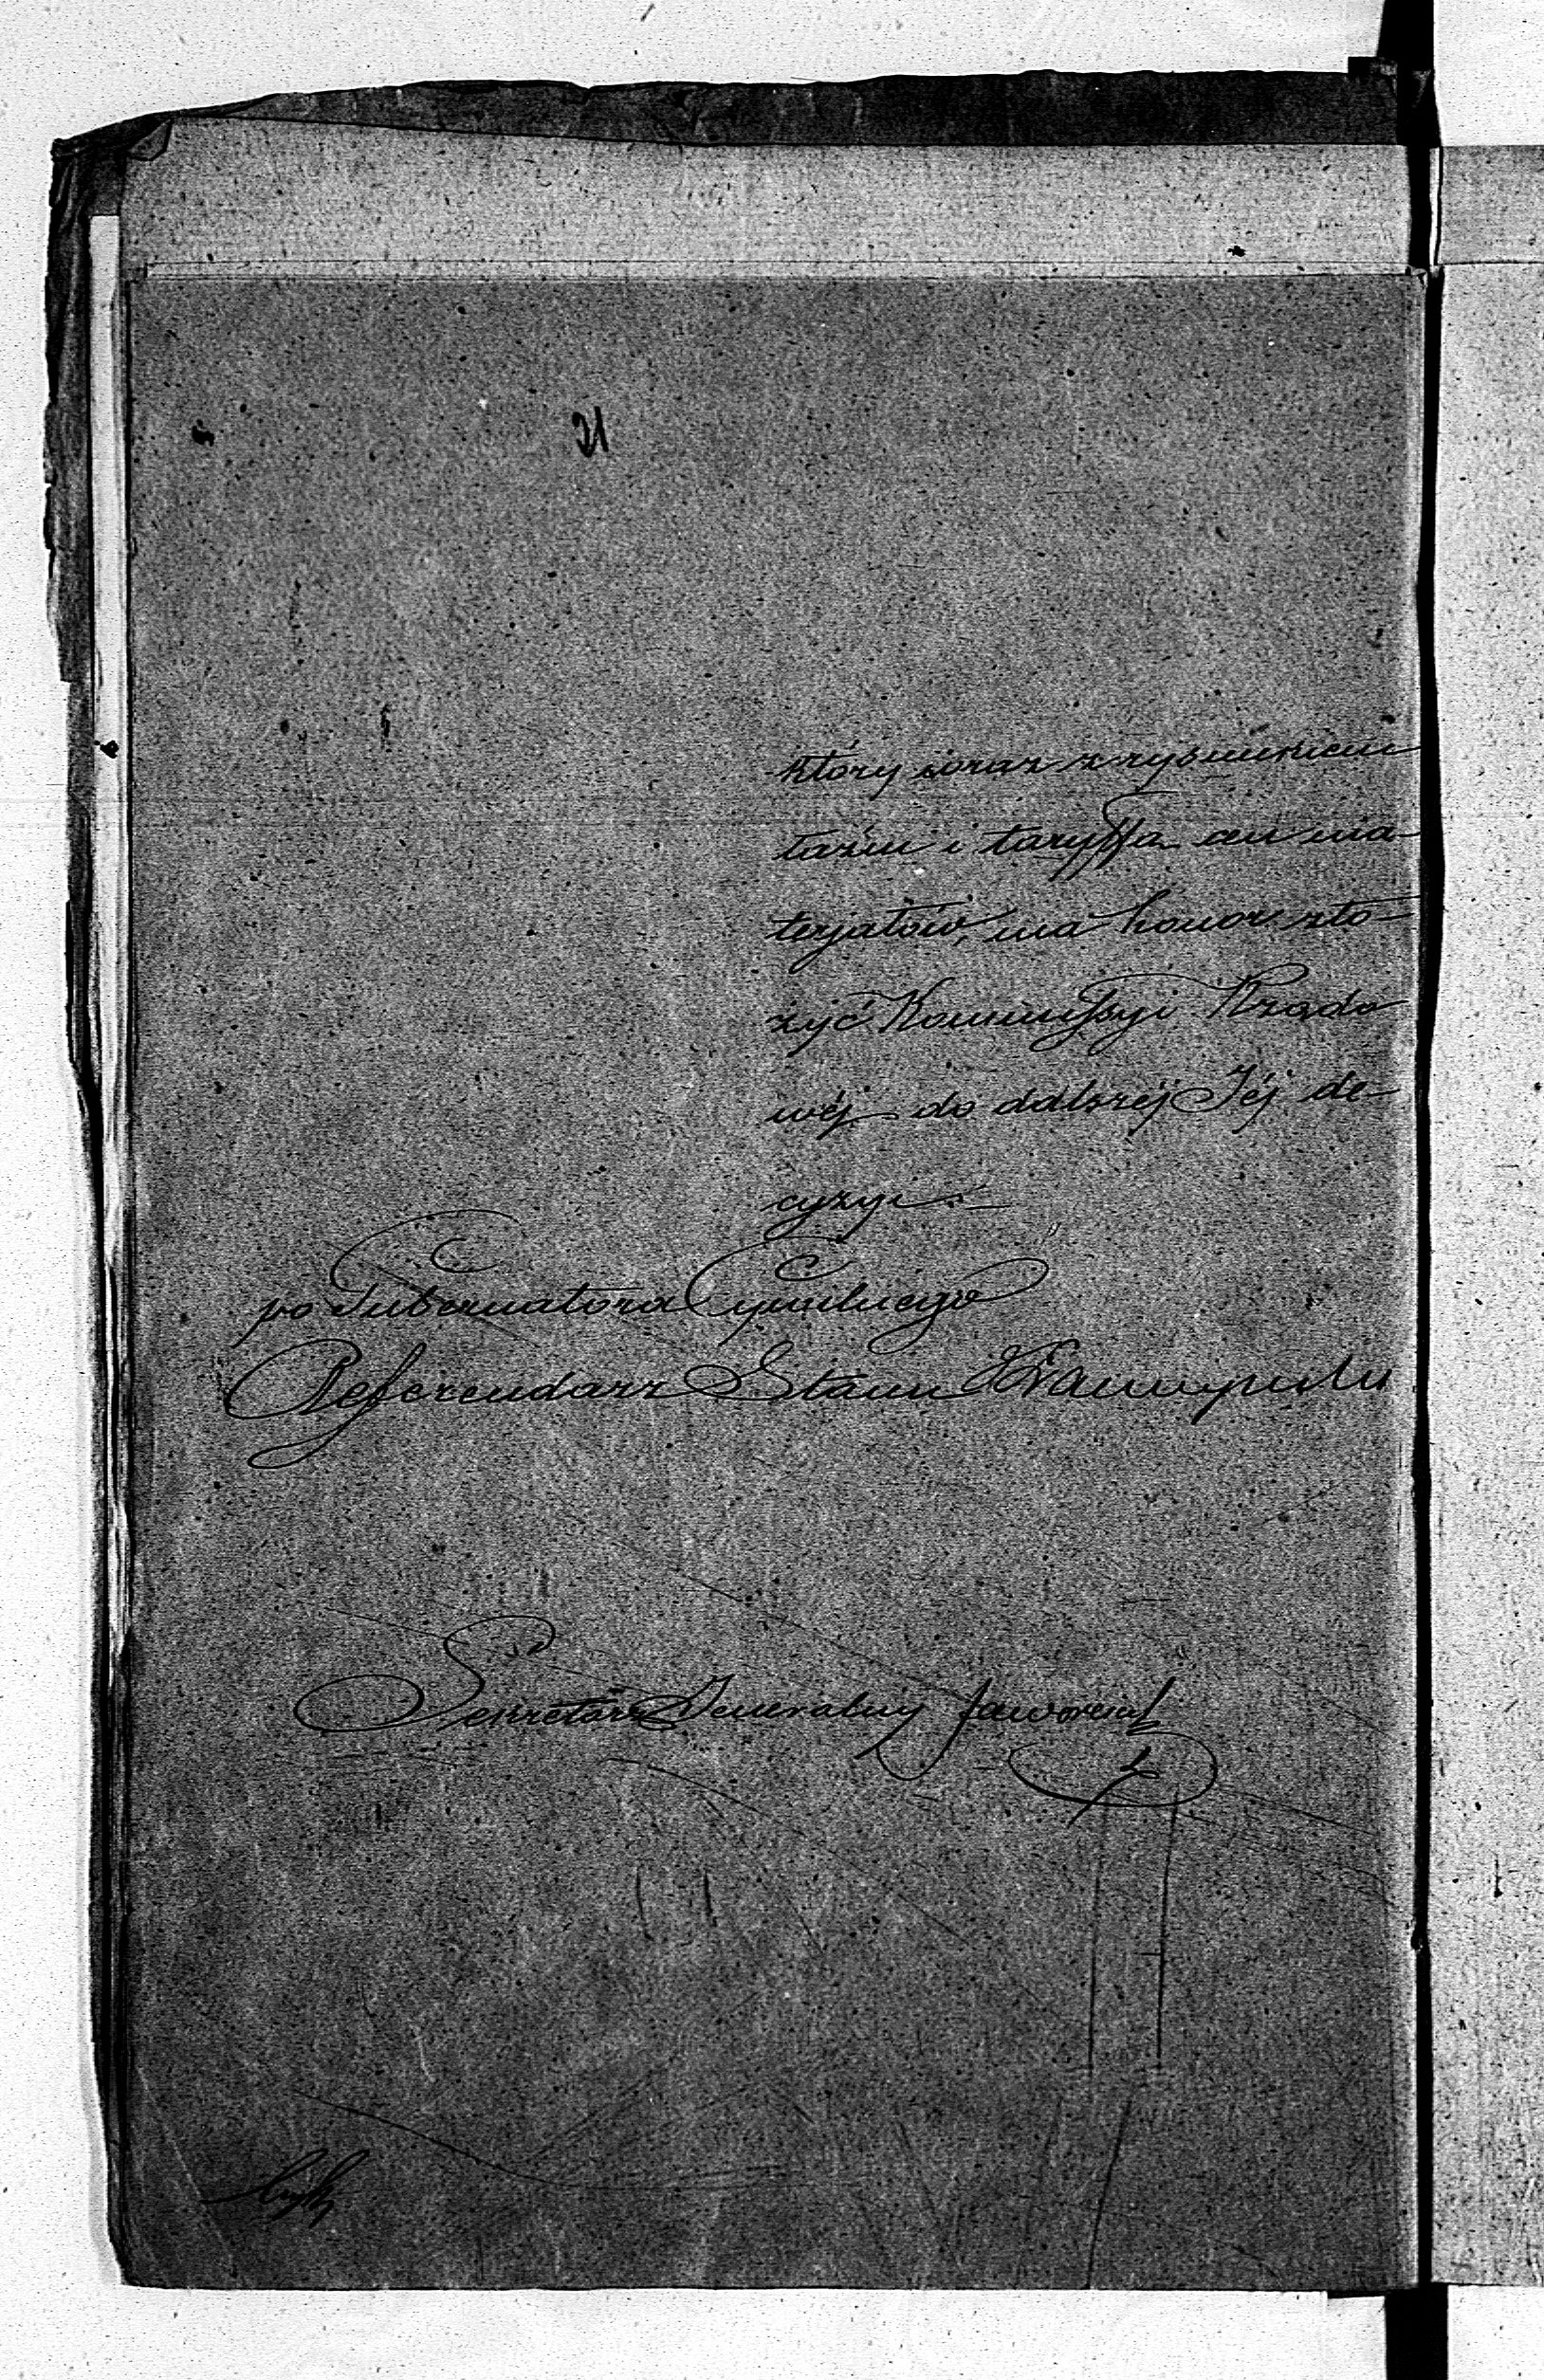 który wraz z rysunkiem
takim i taryffą cen ma-
terjałów, ma honor zło-
żyć Kommissyi Rządo
wéj do dalszéj Jéj de-
cyzyi.—
po Gubernatora Cywilnego
Referendarz Stanu
Sekretarz Jeneralny